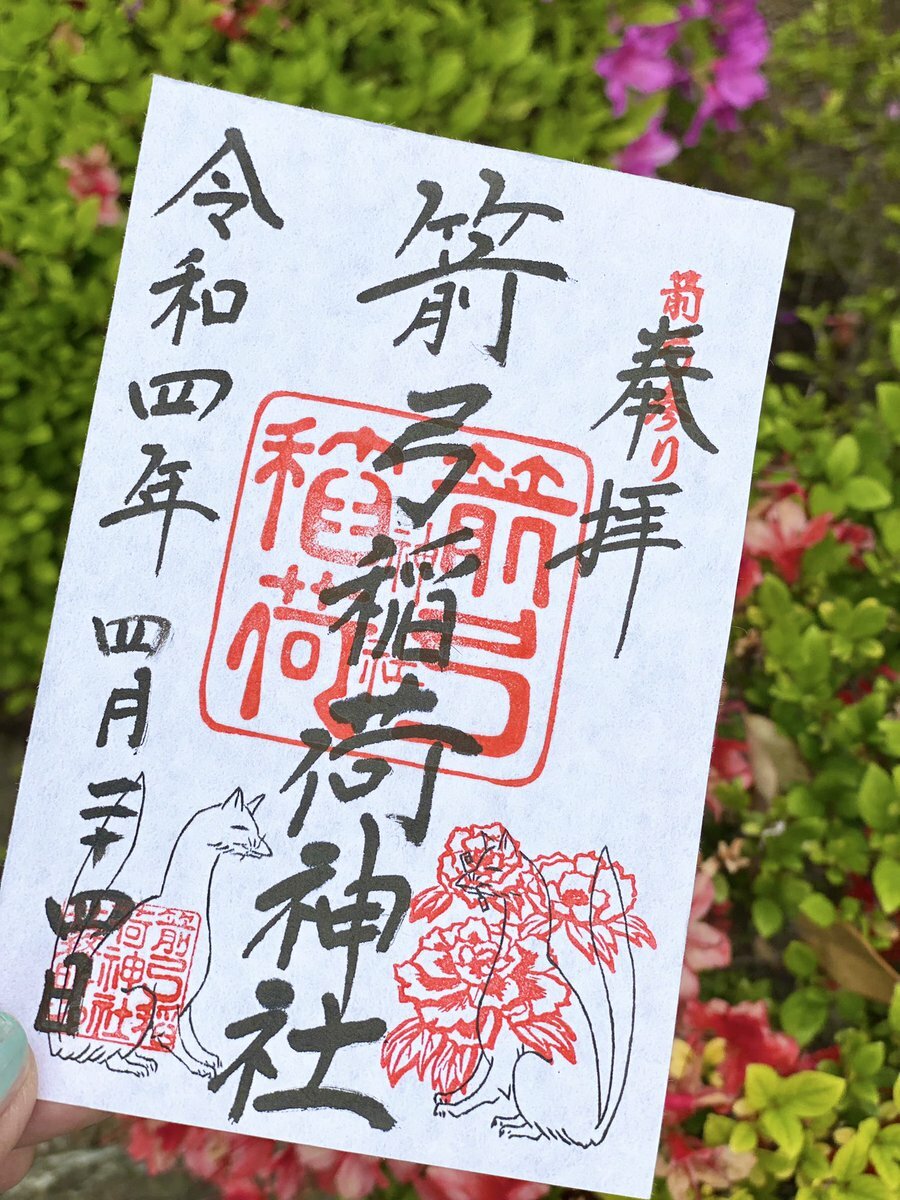 奉拝
箭弓稲荷神社
箭弓
稲荷
神社
令和四年 四月二十四日
箭弓稲
荷神社